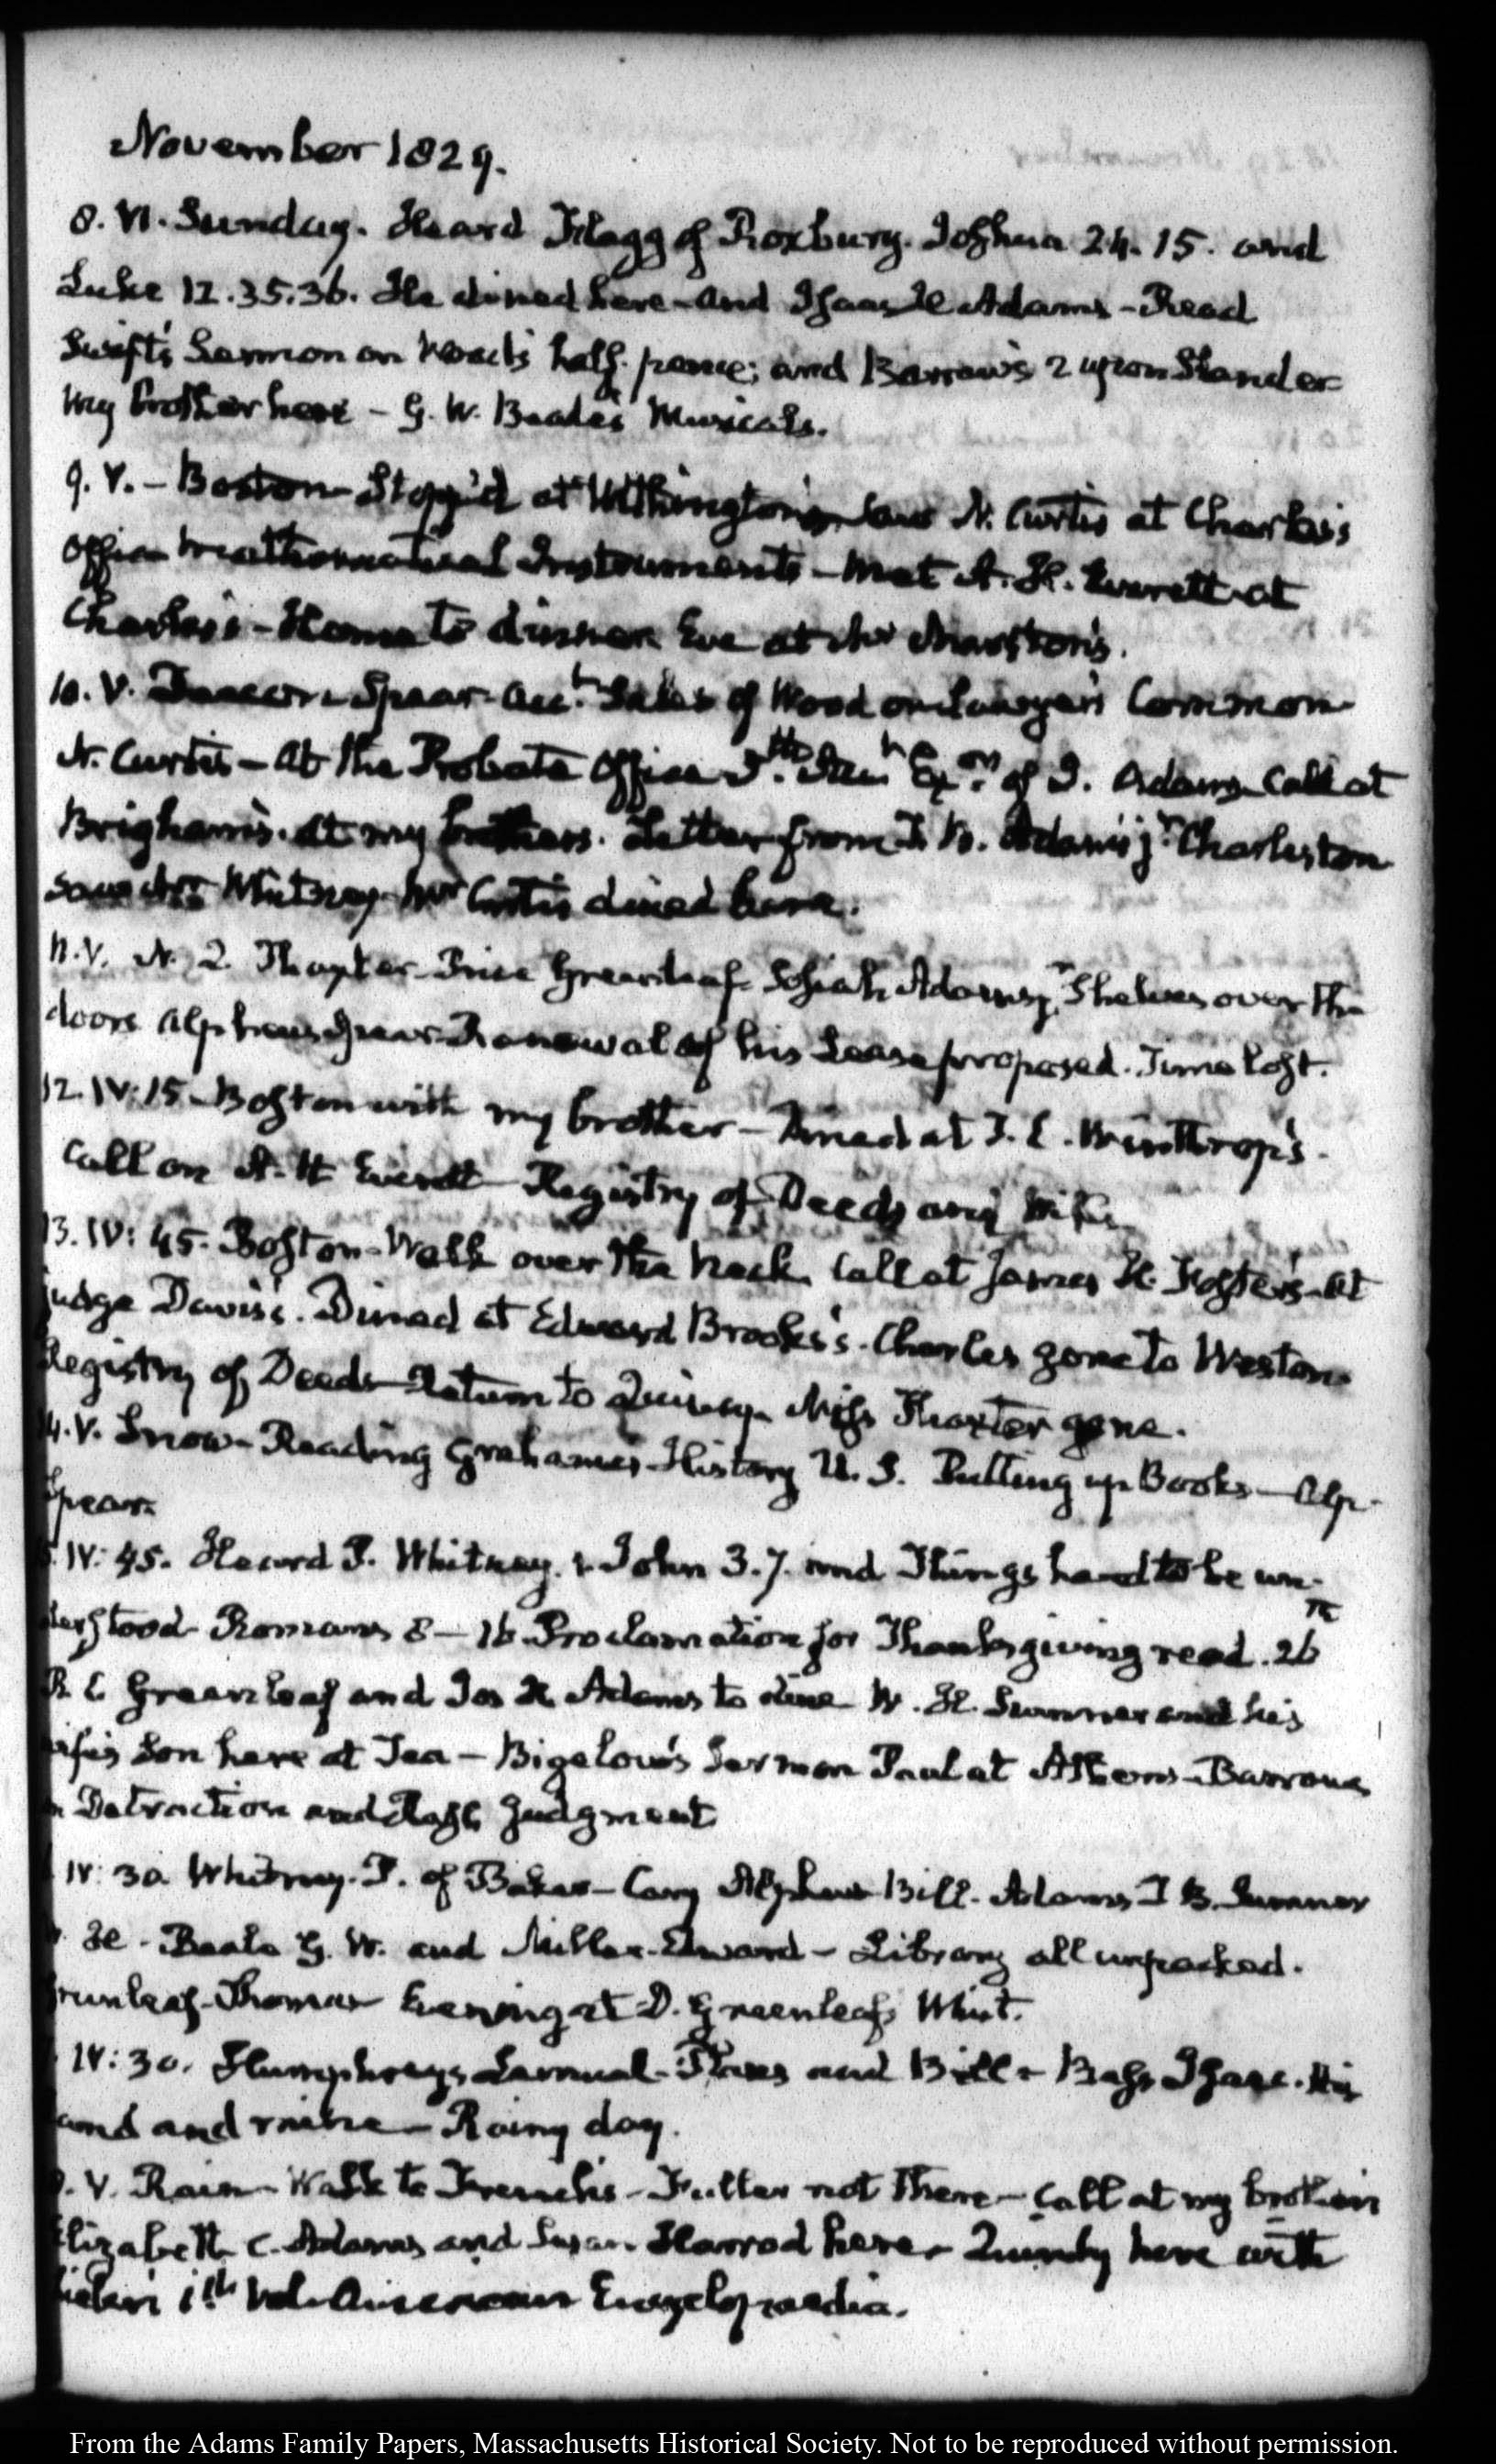 November 1829.
8. VI. Sunday. Heard Flagg of Roxbury. Joshua 24. 15. and
Luke 12. 35. 36. He dined here - and Isaac H Adams - Read
Swift's Sermon on Wood's half-pence; and Barrow's 2 upon Slander
My brother here - G. W. Beale's Musicals.
9. V. - Boston - Stopp'd at Withington's saw N. Curtis at Charles's
Office Mathematical Instruments - Met A. H. Everett at
Charles's - Home to dinner Eve at Mr Marston's.
10. V. Deacon Spear acct. Sales of Wood on Lawyer's Common
N. Curtis - at the Probate Office of J. Adams Call at
Brigham's. at my brothers. Letter from T. B. Adams jr. Charleston
saw Whitney Mr Curtis dined here.
11. V. N. 2. Thayter Price Greenleaf Josiah Adams, Shelves over the
doors Alpheus Spear Renewal of his Lease proposed. Time lost.
12. IV: 15 Boston with my brother - Dined at T. L. Winthrop's.
Call on A. H Everett Registry of Deeds
13. IV: 45. Boston - Walk over the Neck. Call at James H. Foster's - at
Judge Davis's. Dined at Edward Brooks's. Charles gone to Weston
Registry of Deeds Return to Quincy. Miss Thaxter gone.
14. V. Snow - Reading Grahame's History U. S. Putting up Books - Alp.
Spear.
IV: 45. Heard P. Whitney. 1 John 3. 7. and Things hard to be un-
derstood Romans 8 - 16. Proclamation for Thanksgiving read. 26th
P. Greenleaf and Jos H Adams to dine W. H. Sumner and his
wife's Son here at Tea - Bigelow's Sermon Paul at Athens - Barrow
on Detraction and Rash Judgment
IV: 30 Whitney. P. of Baker - Cary Alpheus Bill. Adams T B. Sumner
H - Beale G. W. and Miller Edward - Library all unpacked.
Greenleaf - Thomas Evening at D. Greenleaf's Whist.
IV: 30. Humphreys Samuel - Plans and Bill - Bass Isaac. His
and and mine - Rainy day.
V. Rain - Walk to French's - Fuller not there - Call at my brother's
Elizabeth C. Adams and Susan Harrod here - Quimby here with
1st Vol. American Encyclopaedia.
From the Adams Family Papers, Massachusetts Historical Society. Not to be reproduced without permission.